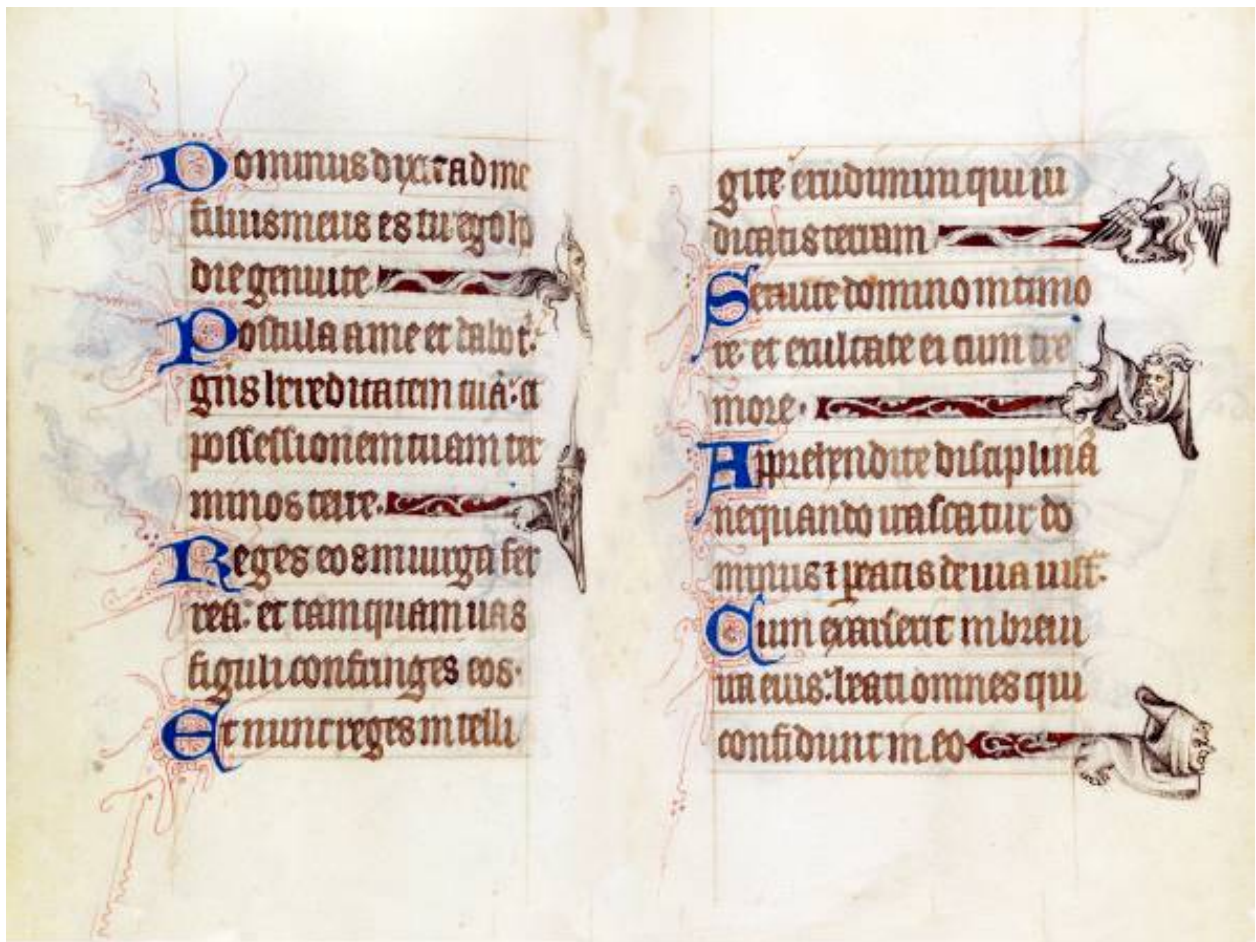 Dominus dixit ad me
filius meus es tu ego ho
die genui te
Postula a me et dabo t᷑
gentes hereditatem tuā: et
possessionem tuam ter
minos terre.
Reges eos in uirga fer
rea: et tamquam uas
figuli confringes eos.
Et nunc reges intelli
gite erudimini qui iu
dicatis terram
Seruite domino in timo
re: et exultate ei cum tre
more.
Apprehendite disciplinā
nequando irascatur do
minus ⁊ peatis de uia iust᷑.
Cum exarserit in breui
ira eius: beati omnes qui
confidunt in eo